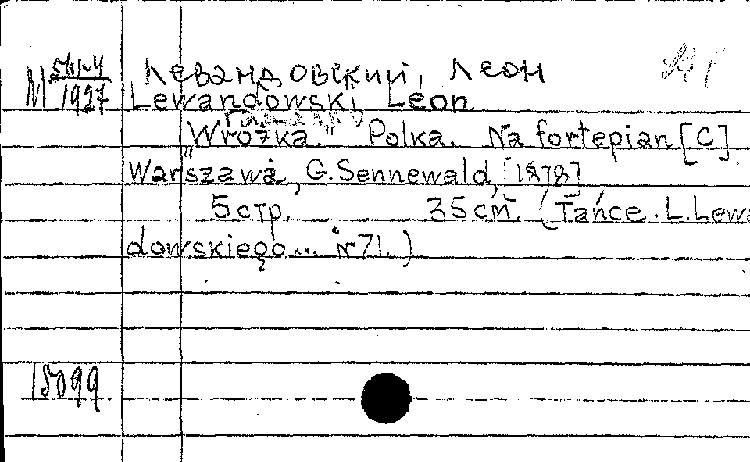 М 541-4/1927
Левандовский, Леон
Lewandowski Leon
"Wróżka." Polka. Na fortepian [C]
Warszawa, G. Sennewald, [1878]
5 стр. 35 см. (Tańce. L. Lewa
dowskiego... nr 71.)
15099